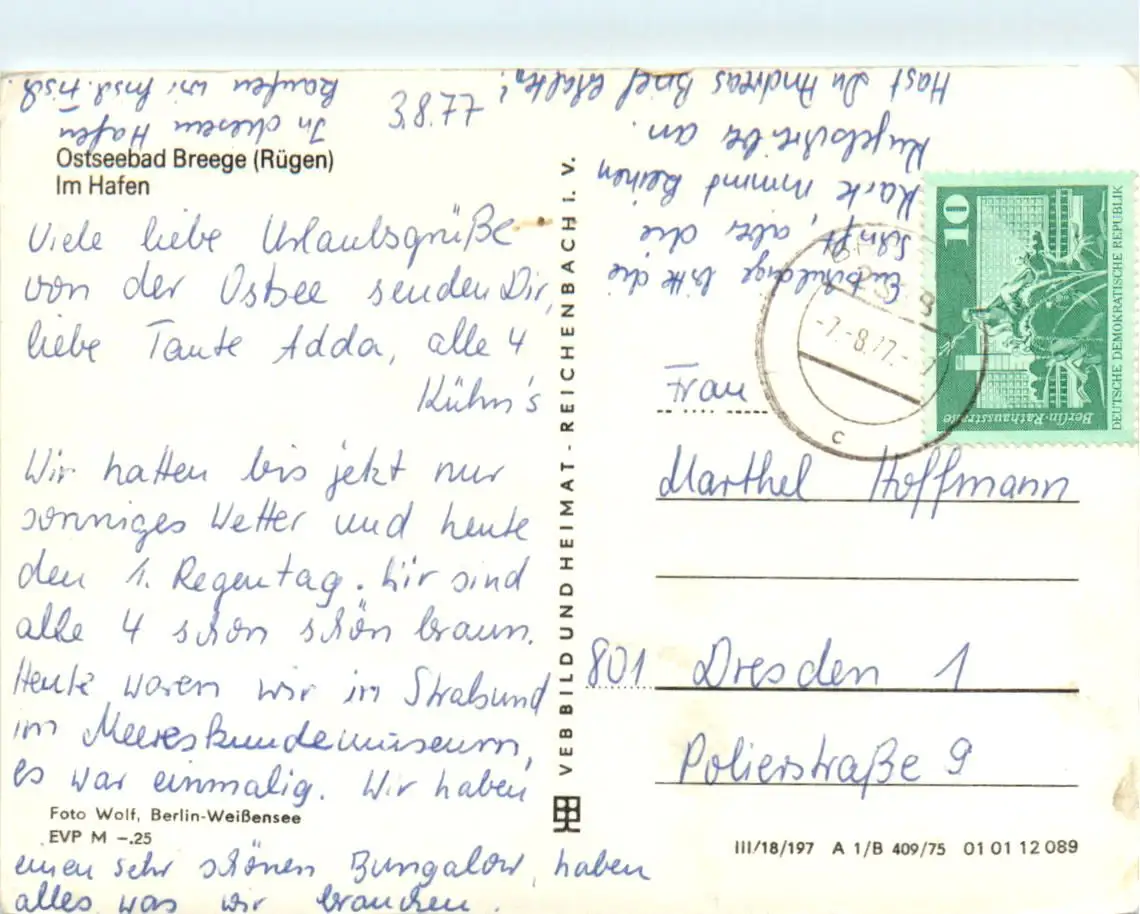 3.8.77
In diesem Hafen
kaufen wir frisch. Fisch
Ostseebad Breege (Rügen)
Im Hafen
Viele liebe Urlaubsgrüße
von der Ostsee senden Dir,
liebe Tante Adda, alle 4
Kühn's
Wir hatten bis jetzt nur
sonniges Wetter und heute
den 1. Regentag. Wir sind
alle 4 schon schön braun.
Heute waren wir in Stralsund
im Meereskundemuseum,
es war einmalig. Wir haben
Foto Wolf, Berlin-Weißensee
EVP M –.25
einen sehr schönen Bungalow, haben
alles was wir brauchen.
VEB BILD UND HEIMAT · REICHENBACH i. V.
Entschuldige bitte die
Schrift, aber die
Karte nimmt keinen
Kugelschreiber an.
Hast Du Andreas Brief erhalten?
10
DEUTSCHE DEMOKRATISCHE REPUBLIK
Berlin·Rathausstraße
-7.-8.77.-
c
Frau
Marthel Hoffmann
801 Dresden 1
Polierstraße 9
III/18/197 A 1/B 409/75 01 01 12 089